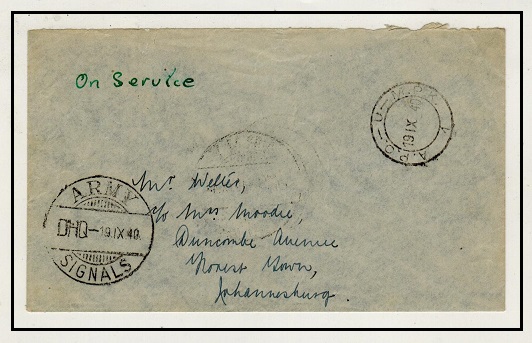 On Service
A.P.O.-U-M.P.K.
19 IX 40
ARMY
DHQ-19 IX 40.
SIGNALS
Mr Welter,
c/o Mrs Moodie,
Duncombe Avenue
Forest Town,
Johannesburg.